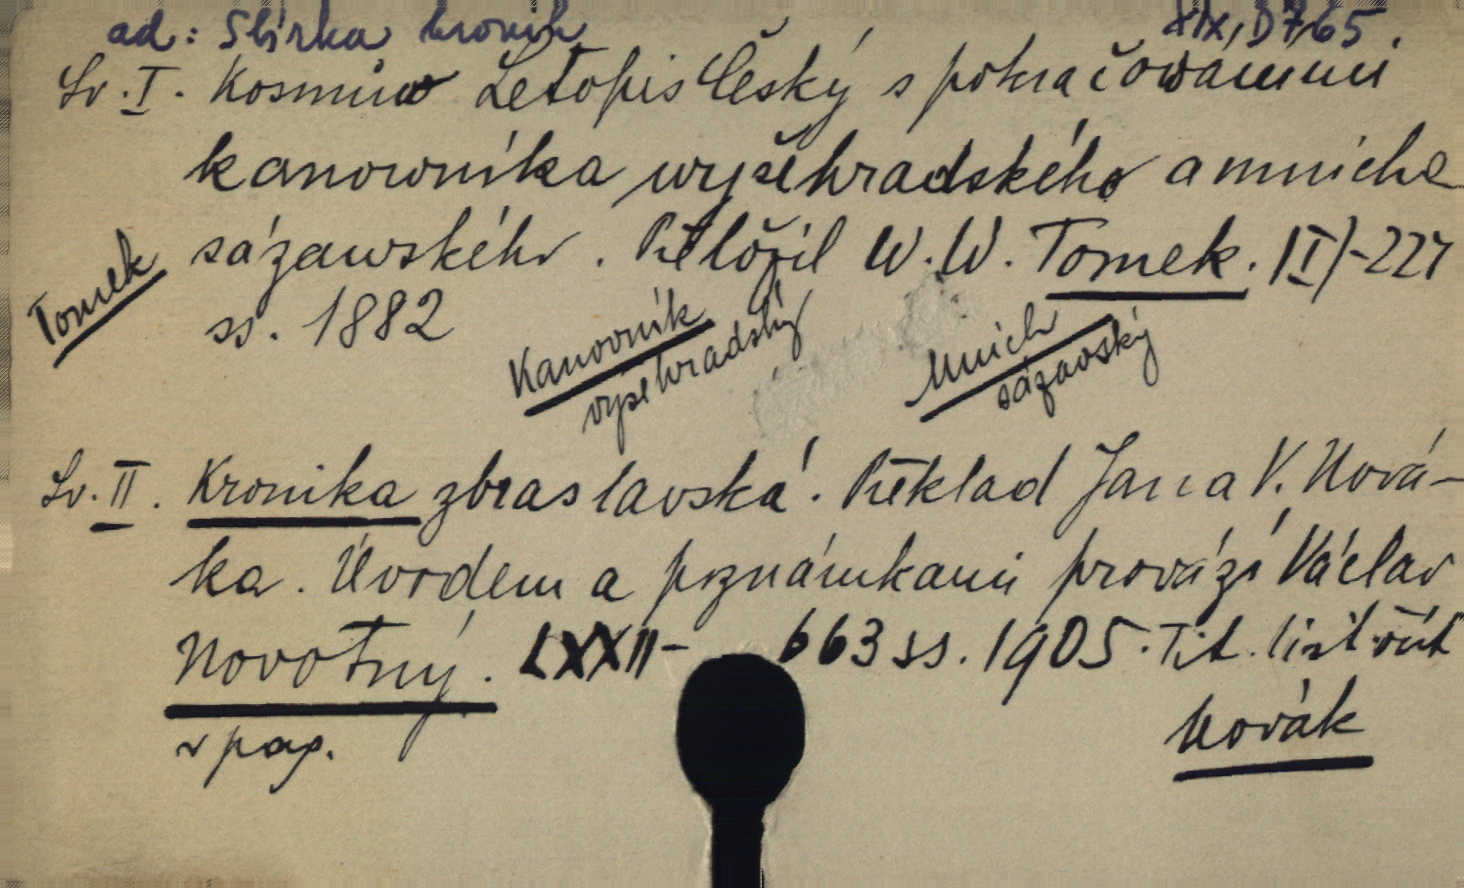 ad: Sbírka kronik XIX, D 7, 65.
Sv. I. Kosmůw Letopis český s pokračowáními
kanowníka wyšehradského a mnicha
sázawského. Přeložil W. W. Tomek. II)-227
ss. 1882
Tomek
Kanovník
vyšehradský
Mnich
sázavský
Sv. II. Kronika zbraslavská. Překlad Jana V. Nová-
ka. Úvodem a poznámkami provází Václav
Novotný. LXXII- 663 ss. 1905. Tit. list
v pag.
Novák